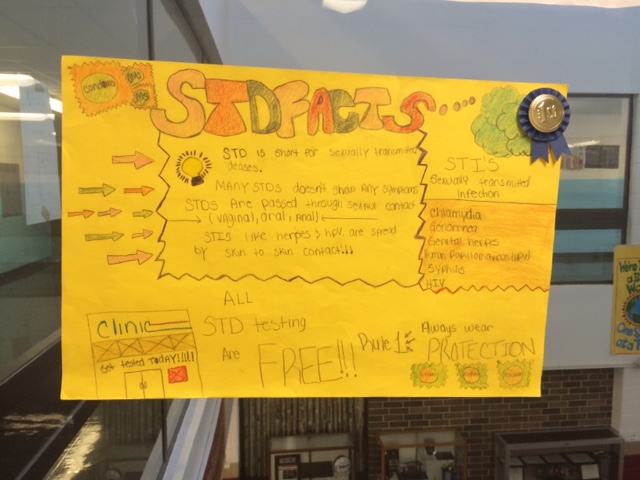 condom
STD FACTS
1st
STD is short for sexually transmitted
deases.
MANY STDs doesn't show Any symptoms
STDs Are passed through sexual contact
(vaginal, oral, anal)
STIs like herpes & hpv, are spread
by skin to skin contact!!!
STI'S
Sexually transmitted
infection
Chlamydia
Genital herpes
Syphilis
HIV
ALL
STD testing
Are FREE!!!
Clinic
Get tested TODAY!!!!!
Rule 1
Always wear
PROTECTION